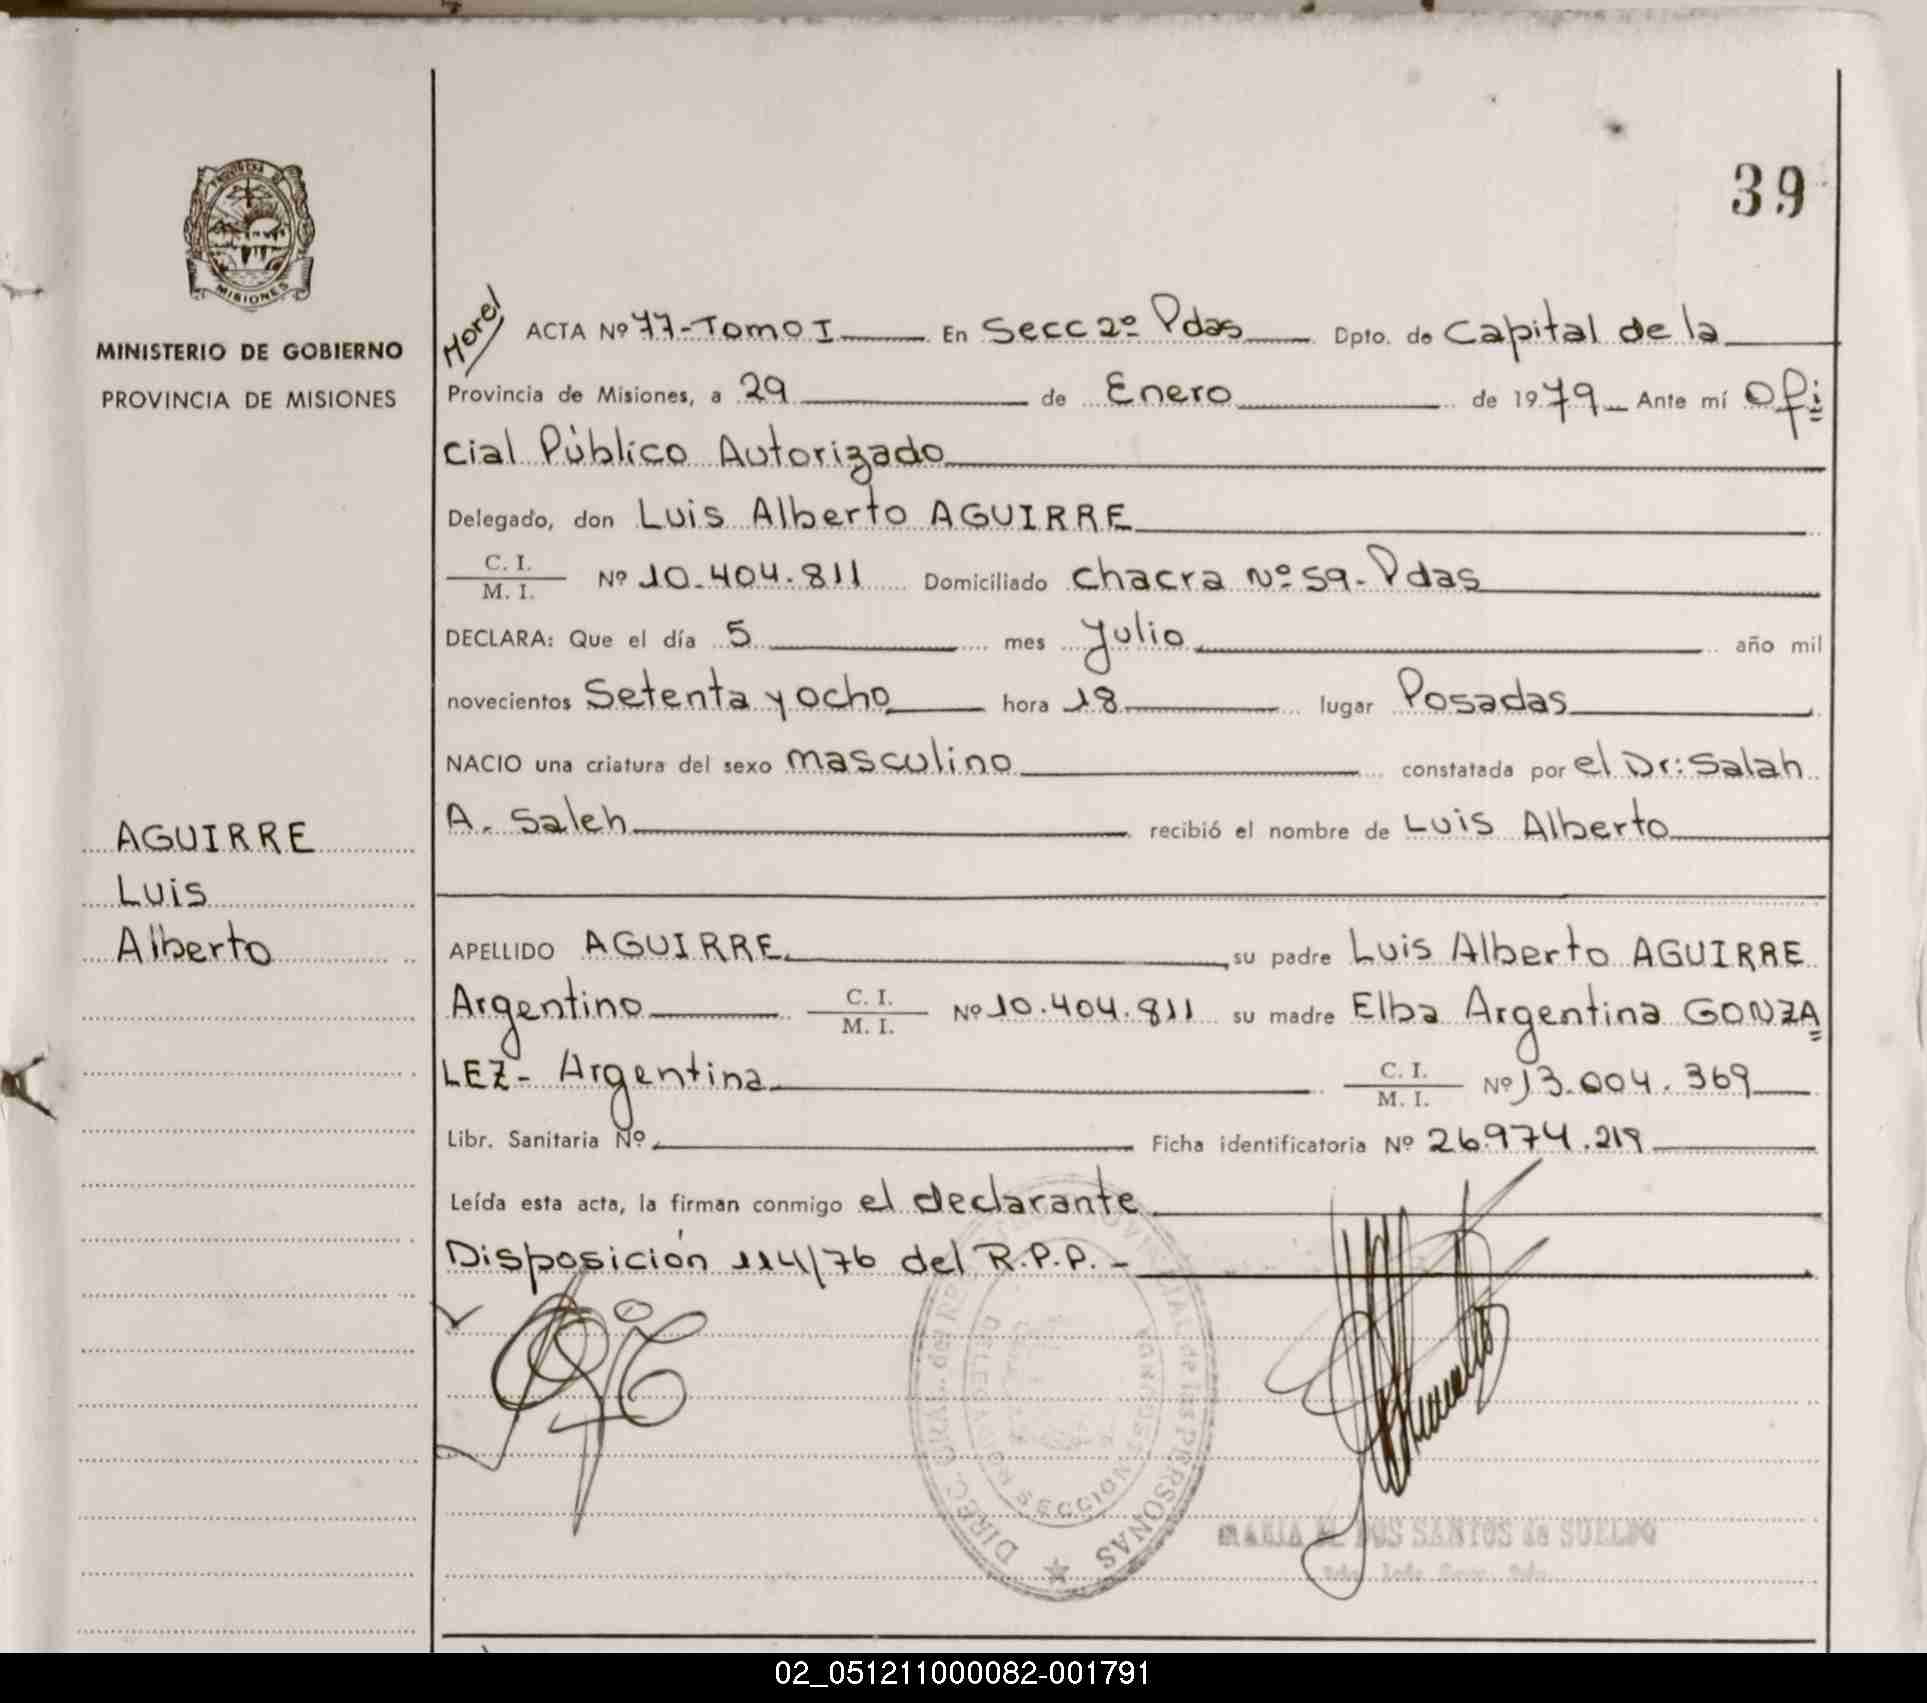 39
PROVINCIA DE
MISIONES
MINISTERIO DE GOBIERNO
PROVINCIA DE MISIONES
AGUIRRE
Luis
Alberto
Morel
ACTA Nº 77-Tomo I En Secc 2º Pdas Dpto. de Capital de la
Provincia de Misiones, a 29 de Enero de 1979 Ante mí Ofi=
cial Público Autorizado
Delegado, don Luis Alberto AGUIRRE
C. I.
M. I. Nº 10.404.811 Domiciliado Chacra Nº 59-Pdas
DECLARA: Que el día 5 mes Julio año mil
novecientos Setenta y ocho hora 18 lugar Posadas
NACIO una criatura del sexo masculino constatada por el Dr: Salah
A. Saleh recibió el nombre de Luis Alberto
APELLIDO AGUIRRE su padre Luis Alberto AGUIRRE
Argentino C. I.
M. I. Nº 10.404.811 su madre Elba Argentina GONZA=
LEZ- Argentina C. I.
M. I. Nº 13.004.369
Libr. Sanitaria Nº Ficha identificatoria Nº 26.974.219
Leída esta acta, la firman conmigo el declarante
Disposición 114/76 del R.P.P.-
DIREC. GRAL. del REG. PROVINCIAL de las PERSONAS
SECCION
MARIA M. DOS SANTOS de SUELDO
02_051211000082-001791